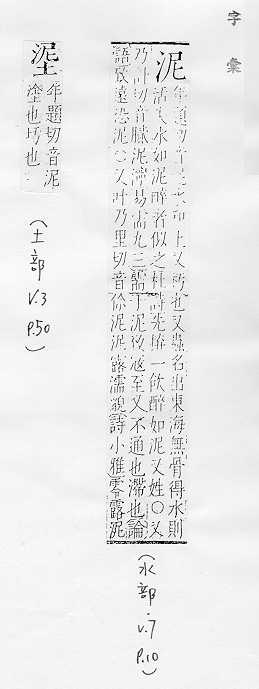 字彙
泥
年題切音尼水和土又污也又蟲名出東海無骨得水則
活失水如泥醉者似之杜詩先拚一飲醉如泥又姓○又
乃計切音膩泥濘易需九三需于泥致寇至又不通也滯也論
語致遠恐泥○又叶乃里切音你泥泥露濡貌詩小雅零露泥
(水部 V.7 P.10)
埿
年題切音泥
塗也圬也
(土部 V.3 P.50)